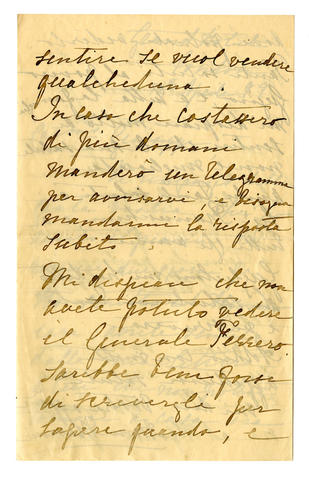 sentire se vuol vendere
qualcheduna.
In caso che costassero
di più domani
manderò un telegramma
per avvisarvi, e bisogna
mandarmi la risposta
subito.
Mi dispiace che non
avete potuto vedere
il Generale Ferrero.
Sarebbe bene forse
di scrivergli per
sapere quando, e